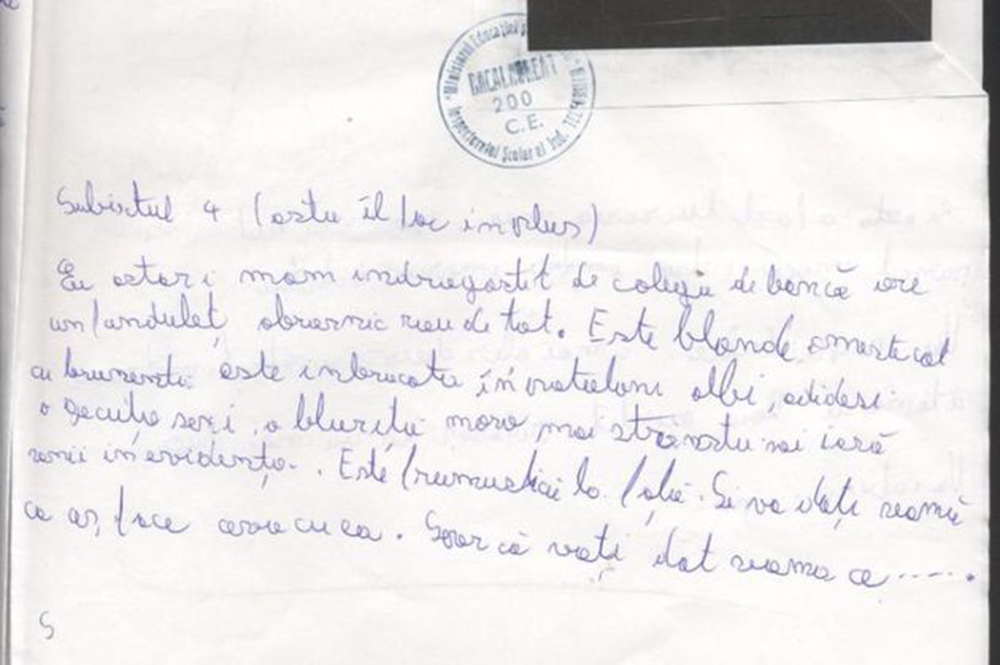 "Ministerul Educației
BACALAUREAT
200
C.E.
Inspectoratul Școlar al Jud. TELEORMAN"
Subiectul 4 (asta îl fac in plus)
Eu astazi mam indragostit de colega de bancă are
un funduleț obraznic rau de tot. Este blonda amestecat
cu brunenta este inbracata în pataloni albi adidasi
o geacuța sexi, o bluzița maro, mai stransta sai iasă
sanii in evidența. Este frumusica la față. Si va dați seama
ce aș face eu cu ea. Sper că vați dat seama ce ......